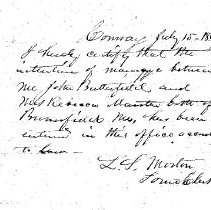 Conway July 15 - 18
I hereby certify that the
intention of marriage between
Mr John Butterfield and
Miss Rebecca both of
Brownfield Me, has been
entered in this office according
to law -
L. L. Morton
Town Clerk